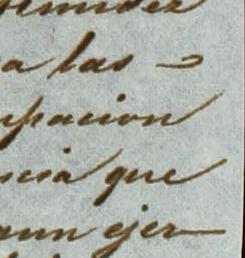 a las
upacion
ncia que
aun ejer